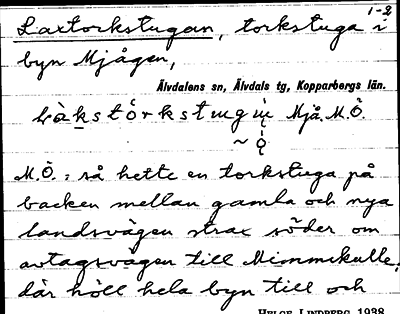 1-2
Laxtorkstugan, torkstuga i
byn Mjågen,
Älvdalens sn, Älvdals tg, Kopparbergs län.
Mjå. M.Ö.
M.Ö.: så hette en torkstuga på
backen mellan gamla och nya
landsvägen strax söder om
avtagsvägen till Mimmikulle,
där höll hela byn till och
HELGE LINDBERG 1938